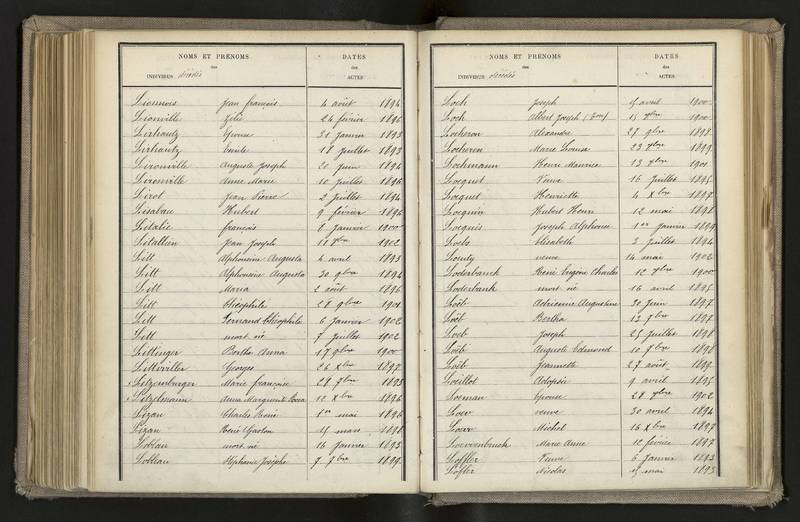 NOMS ET PRÉNOMS
des
INDIVIDUS décédés
DATES
des
ACTES.
Lionnois Jean françois 4 août 1894
Lionville Zélie 24 février 1896
Lirhantz épouse 31 Janvier 1893
Lirhantz Emile 18 Juillet 1893
Lironville Auguste Joseph 20 Juin 1894
Lironville Anne Marie 10 Juillet 1896
Lirot Jean Pierre 2 Juillet 1894
Lisabau Hubert 9 février 1896
Litalie françois 8 Janvier 1900
Litallien Jean Joseph 1902
Litt Alphonsine Augusta 4 avril 1893
Litt Alphonsine Augusta 30 9bre 1894
Litt Maria 2 août 1896
Litt théophile 28 9bre 1901
Litt Fernand théophile 6 Janvier 1902
Litt mort né 7 Juillet 1902
Littinger Bertha Anna 17 9bre 1900
Littviller Georges 26 Xbre 1897
Litzenburger Marie françoise 28 7bre 1893
Litzelmann Anna Marguerite Rosa 12 Xbre 1896
Lizan Charles René 1er mai 1896
Lizan René Gaston 15 mars 1898
Lobeau mort né 16 Janvier 1893
Lobeau Stéphanie Josèphe 7 7bre 1899
NOMS ET PRÉNOMS
des
INDIVIDUS décédés
DATES
des
ACTES.
Loch Joseph 15 avril 1900
Loch Albert Joseph 15 1900
Locheron Alexandre 27 9bre 1898
Locheron Marie Louise 23 1899
Lochmann Henri Maurice 13 1901
Locquet Veuve 16 Juillet 1895
Locquet Henriette 4 Xbre 1897
Locquin Hubert Henri 12 mai 1898
Locquis Joseph Alphonse 1er Janvier 1899
Loeb Elisabeth 3 Juillet 1894
veuve 14 mai 1902
Loderbanck René Eugène Charles 12 1900
Loderbank mort né 16 avril 1895
Loëb Adrienne Augustine 30 Juin 1897
Loëb Bertha 13 7bre 1897
Loeb Joseph 25 Juillet 1898
Loëb Auguste Edmond 10 7bre 1898
Loëb Jeannette 27 août 1899
Loeillot Adopsie 9 avril 1895
Loeman épouse 28 1902
Loew veuve 30 avril 1894
Loew Michel 16 Xbre 1897
Loevenbruck Marie Anne 12 février 1897
Loffler Veuve 6 Janvier 1893
Lofler Nicolas 15 mai 1893